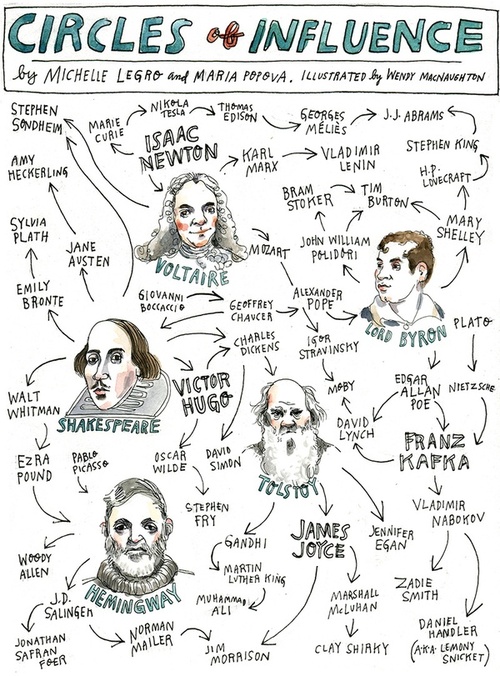 CIRCLES of INFLUENCE
by MICHELLE LEGRO and MARIA POPOVA. ILLUSTRATED by WENDY MACNAUGHTON
STEPHEN
SONDHEIM
MARIE
CURIE
NIKOLA
TESLA
THOMAS
EDISON
GEORGES
MÉLIÈS
J.J. ABRAMS
ISAAC
NEWTON
KARL
MARX
VLADIMIR
LENIN
STEPHEN KING
AMY
HECKERLING
H.P.
LOVECRAFT
BRAM
STOKER
TIM
BURTON
MARY
SHELLEY
SYLVIA
PLATH
JANE
AUSTEN
VOLTAIRE
MOZART
JOHN WILLIAM
POLIDORI
EMILY
BRONTE
GIOVANNI
BOCCACCIO
GEOFFREY
CHAUCER
ALEXANDER
POPE
LORD BYRON
PLATO
CHARLES
DICKENS
IGOR
STRAVINSKY
WALT
WHITMAN
SHAKESPEARE
VICTOR
HUGO
MOBY
EDGAR
ALLAN
POE
NIETZSCHE
DAVID
LYNCH
FRANZ
KAFKA
EZRA
POUND
PABLO
PICASSO
OSCAR
WILDE
DAVID
SIMON
TOLSTOY
STEPHEN
FRY
VLADIMIR
NABOKOV
WOODY
ALLEN
GANDHI
JAMES
JOYCE
JENNIFER
EGAN
HEMINGWAY
MARTIN
LUTHER KING
MUHAMMAD
ALI
MARSHALL
McLUHAN
ZADIE
SMITH
J.D.
SALINGER
JONATHAN
SAFRAN
FOER
NORMAN
MAILER
JIM
MORRISON
CLAY SHIRKY
DANIEL
HANDLER
(A.K.A. LEMONY
SNICKET)